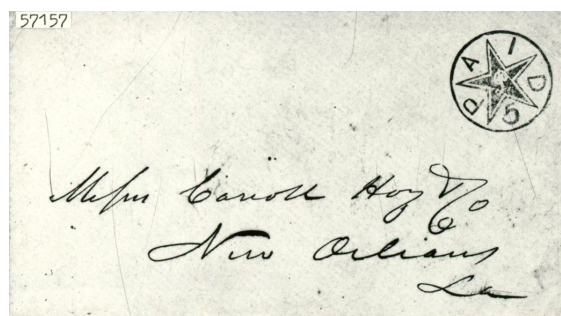 57157
PAID
5
Messrs Carroll Hoy & Co
New Orleans
La